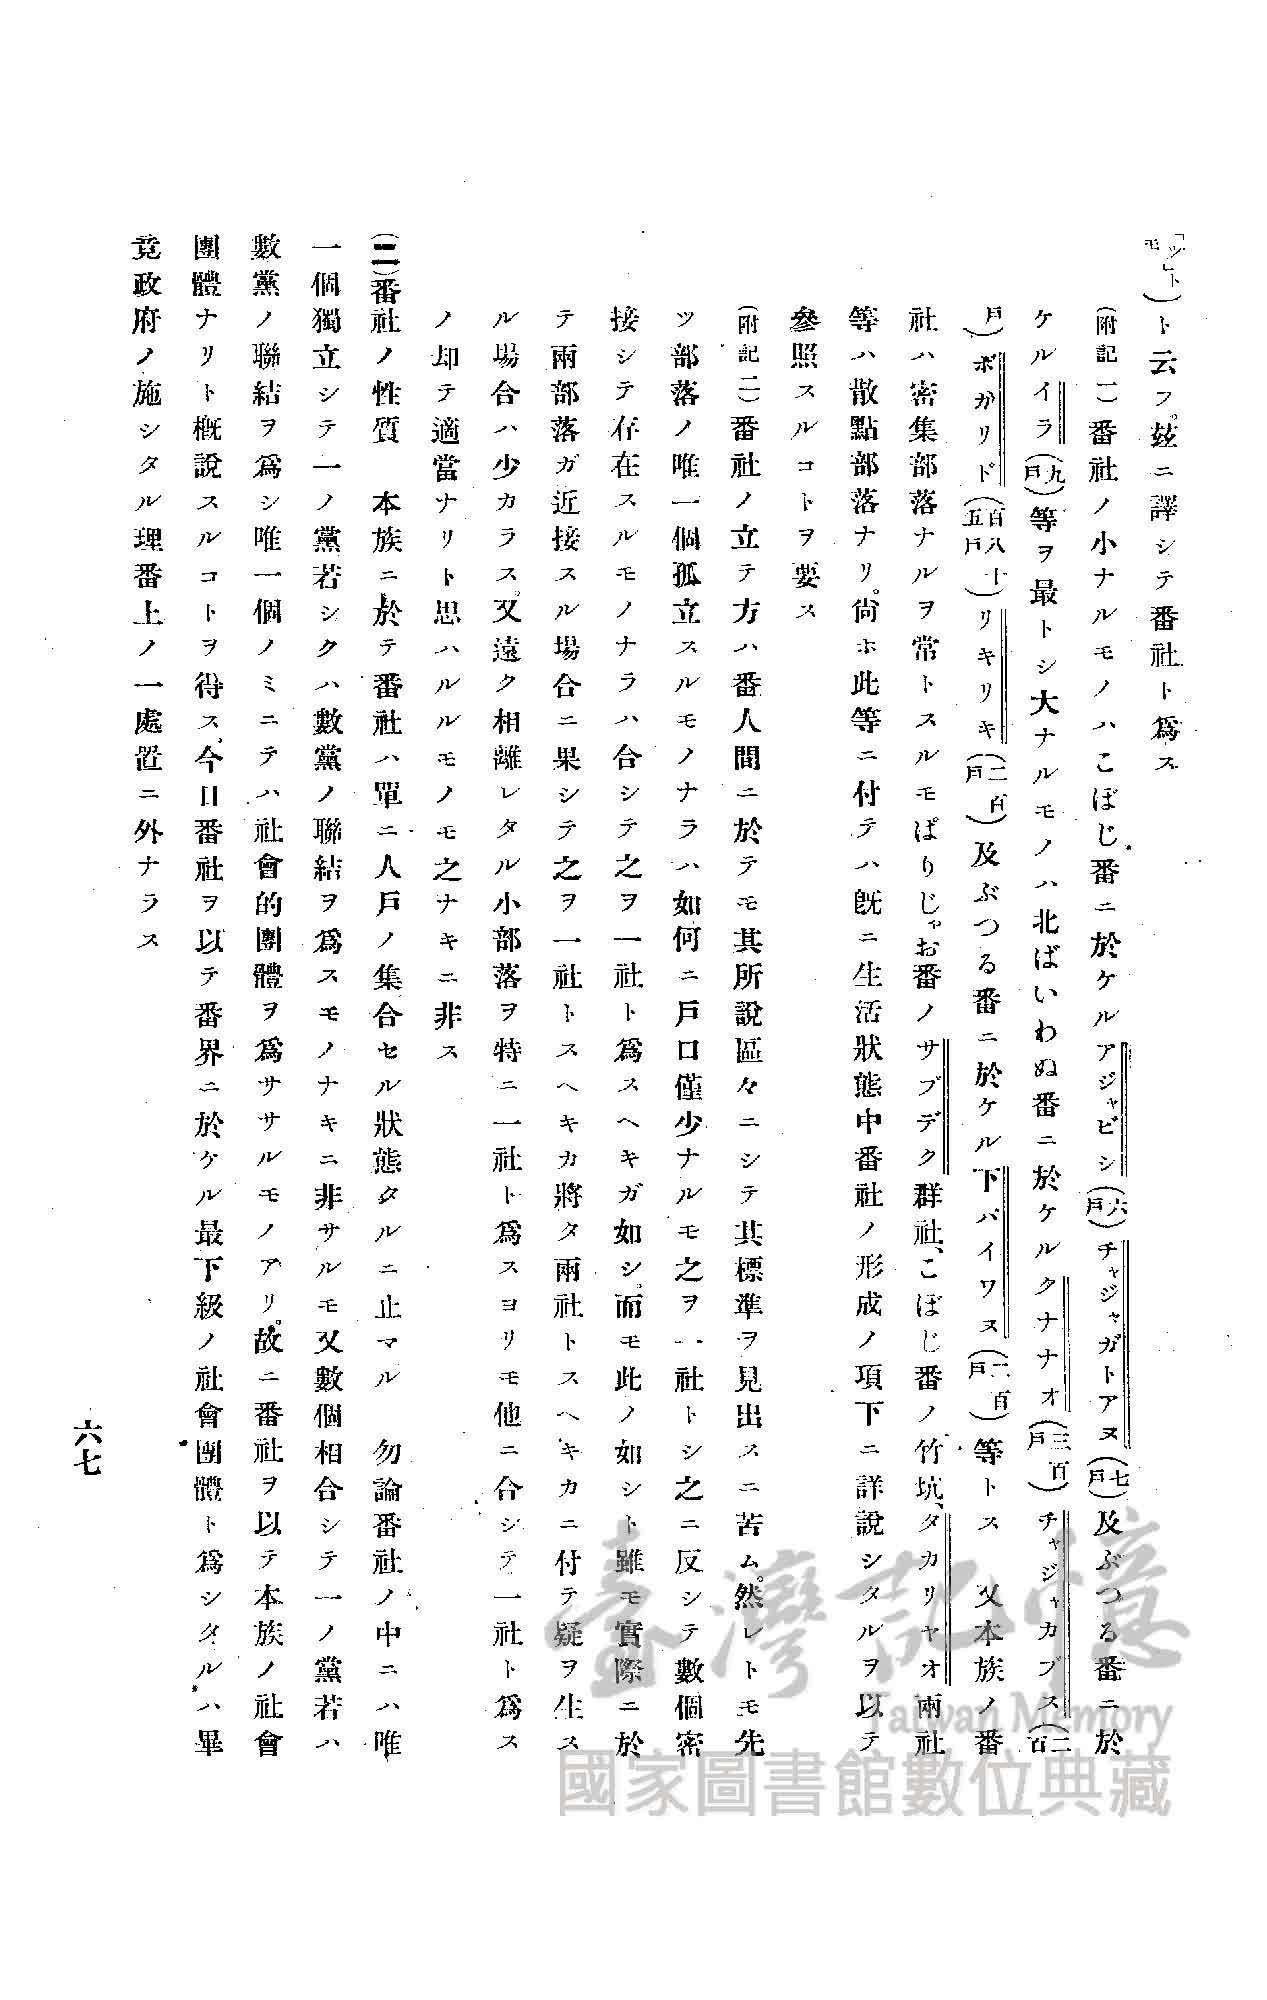 「ツ」トモ)ト云フ。玆ニ譯シテ番社ト爲ス
(附記一)番社ノ小ナルモノハこぼじ番ニ於ケルアジャビシ(六戶)チャジャガトアヌ(七戶)及ぶつる番ニ於
ケルイラ(九戶)等ヲ最トシ大ナルモノハ北ばいわぬ番ニ於ケルクナナオ(三百戶)チャジャカブス(二百
戶)ボガリド(百八十五戶)リキリキ(二百戶)及ぶつる番ニ於ケル下バイワヌ(二百戶)等トス 又本族ノ番
社ハ密集部落ナルヲ常トスルモぱりじゃお番ノサブデク群社、こぼじ番ノ竹坑、タカリャオ兩社
等ハ散點部落ナリ。尙ホ此等ニ付テハ旣ニ生活狀態中番社ノ形成ノ項下ニ詳說シタルヲ以テ
參照スルコトヲ要ス
(附記二)番社ノ立テ方ハ番人間ニ於テモ其所說區々ニシテ其標準ヲ見出スニ苦ム。然レトモ先
ツ部落ノ唯一個孤立スルモノナラハ如何ニ戶口僅少ナルモ之ヲ一社トシ之ニ反シテ數個密
接シテ存在スルモノナラハ合シテ之ヲ一社ト爲スヘキガ如シ。而モ此ノ如シト雖モ實際ニ於
テ兩部落ガ近接スル場合ニ果シテ之ヲ一社トスヘキカ將タ兩社トスヘキカニ付テ疑ヲ生ス
ル場合ハ少カラス。又遠ク相離レタル小部落ヲ特ニ一社ト爲スヨリモ他ニ合シテ一社ト爲ス
ノ却テ適當ナリト思ハルルモノモ之ナキニ非ス
(二)番社ノ性質 本族ニ於テ番社ハ單ニ人戶ノ集合セル狀態タルニ止マル 勿論番社ノ中ニハ唯
一個獨立シテ一ノ黨若シクハ數黨ノ聯結ヲ爲スモノナキニ非サルモ又數個相合シテ一ノ黨若ハ
數黨ノ聯結ヲ爲シ唯一個ノミニテハ社會的團體ヲ爲ササルモノアリ。故ニ番社ヲ以テ本族ノ社會
團體ナリト槪說スルコトヲ得ス。今日番社ヲ以テ番界ニ於ケル最下級ノ社會團體ト爲シタルハ畢
竟政府ノ施シタル理番上ノ一處置ニ外ナラス
六七
臺灣記憶
Taiwan Memory
國家圖書館數位典藏